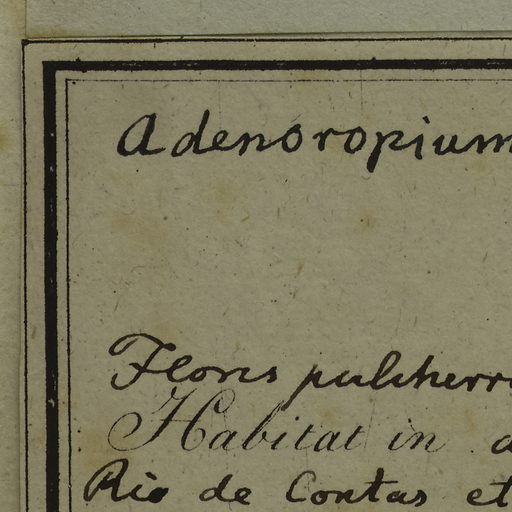 Adenoropium
Floris pulcherr
Habitat in
Rio de Contas et